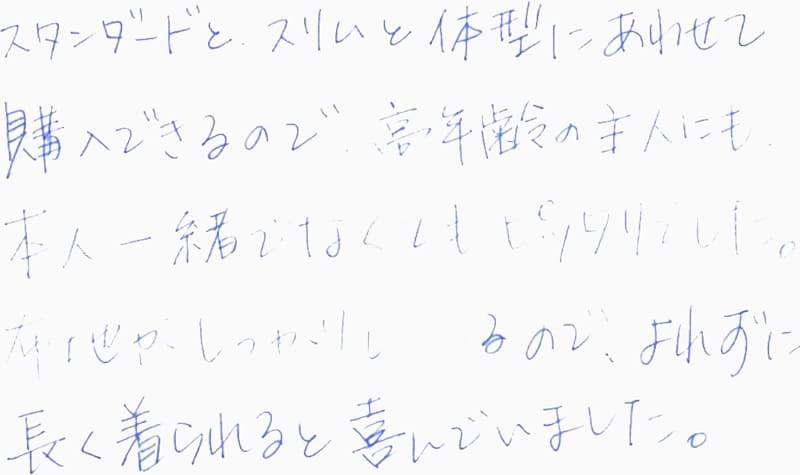 スタンダードと、スリムと体型にあわせて
購入できるので、高年齢の主人にも、
本人一緒でなくてもピッタリでした。
布地がしっかりし るので、よれずに
長く着られると喜んでいました。